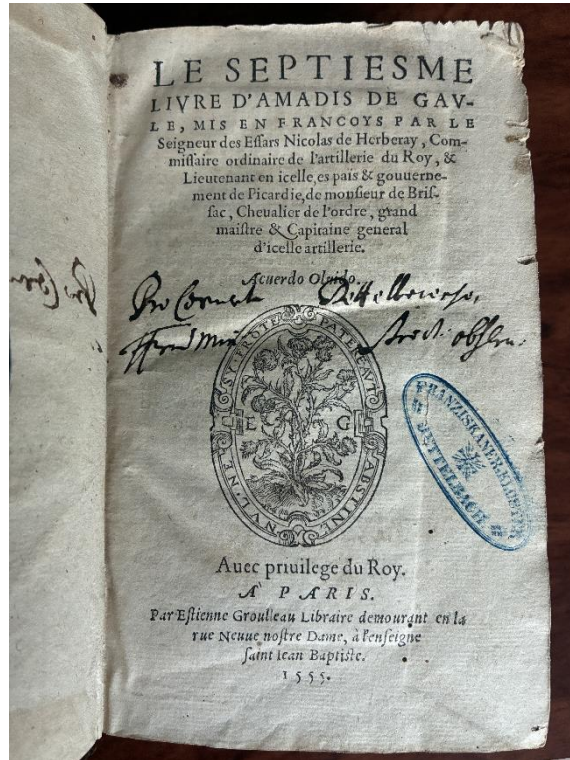 LE SEPTIESME
LIVRE D'AMADIS DE GAV-
LE, MIS EN FRANCOYS PAR LE
Seigneur des Eſſars Nicolas de Herberay, Com-
miſſaire ordinaire de l'artillerie du Roy, &
Lieutenant en icelle, es païs & gouuerne-
ment de Picardie, de monſieur de Briſ-
ſac, Cheualier de l'ordre, grand
maiſtre & Capitaine general
d'icelle artillerie.
Acuerdo Oluido.
Pro Conventu
NVL NE SY FROTE PATERE AVT ABSTINE
E G
FRANZISKANERKLOSTER
DETTELBACH
Auec priuilege du Roy.
A PARIS.
Par Eſtienne Groulleau Libraire demourant en la
rue Neuue noſtre Dame, à l'enſeigne
ſaint Iean Baptiſte.
1555.